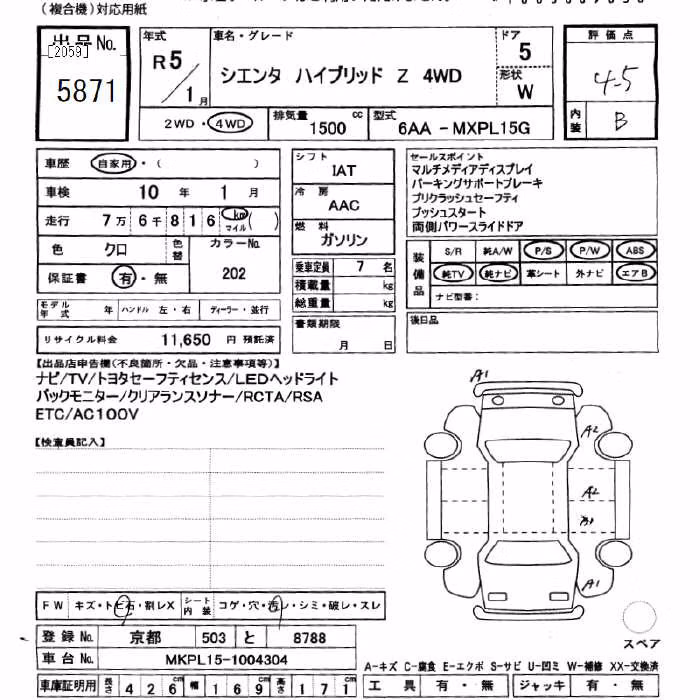 (複合機)対応用紙
出品No.
[2059]
5871
年式
R5/1月
車名・グレード
シエンタ ハイブリッド Z 4WD
ドア
5
形状
W
評価点
4.5
内装
B
2WD・4WD
排気量
1500 cc
型式
6AA -MXPL15G
車歴 自家用・( )
車検 10 年 1 月
走行 7万 6千 8 1 6 km マイル ( )
色 クロ
色替
カラーNo.
202
保証書 有・無
モデル年式 年 ハンドル 左・右 ディーラー・並行
リサイクル料金 11,650 円 預託済
シフト
IAT
冷房
AAC
燃料
ガソリン
乗車定員 7 名
積載量 kg
総重量 kg
書類期限
月 日
セールスポイント
マルチメディアディスプレイ
パーキングサポートブレーキ
プリクラッシュセーフティ
プッシュスタート
両側パワースライドドア
装備品
S/R 純A/W P/S P/W ABS
純TV 純ナビ 革シート 外ナビ エアB
ナビ型番:
後日品
【出品店申告欄(不良箇所・欠品・注意事項等)】
ナビ/TV/トヨタセーフティセンス/LEDヘッドライト
バックモニター/クリアランスソナー/RCTA/RSA
ETC/AC100V
【検査員記入】
A1
A2
A2
A1
FW キズ・トビ石・割レX
シート内装 コゲ・穴・汚レ・シミ・破レ・スレ
登録No. 京都 503 と 8788
車台No. MKPL15-1004304
車庫証明用 長さ 426cm 幅 169cm 高さ 171cm
スペア
A-キズ C-腐食 E-エクボ S-サビ U-凹ミ W-補修 XX-交換済
工具 有・無 ジャッキ 有・無